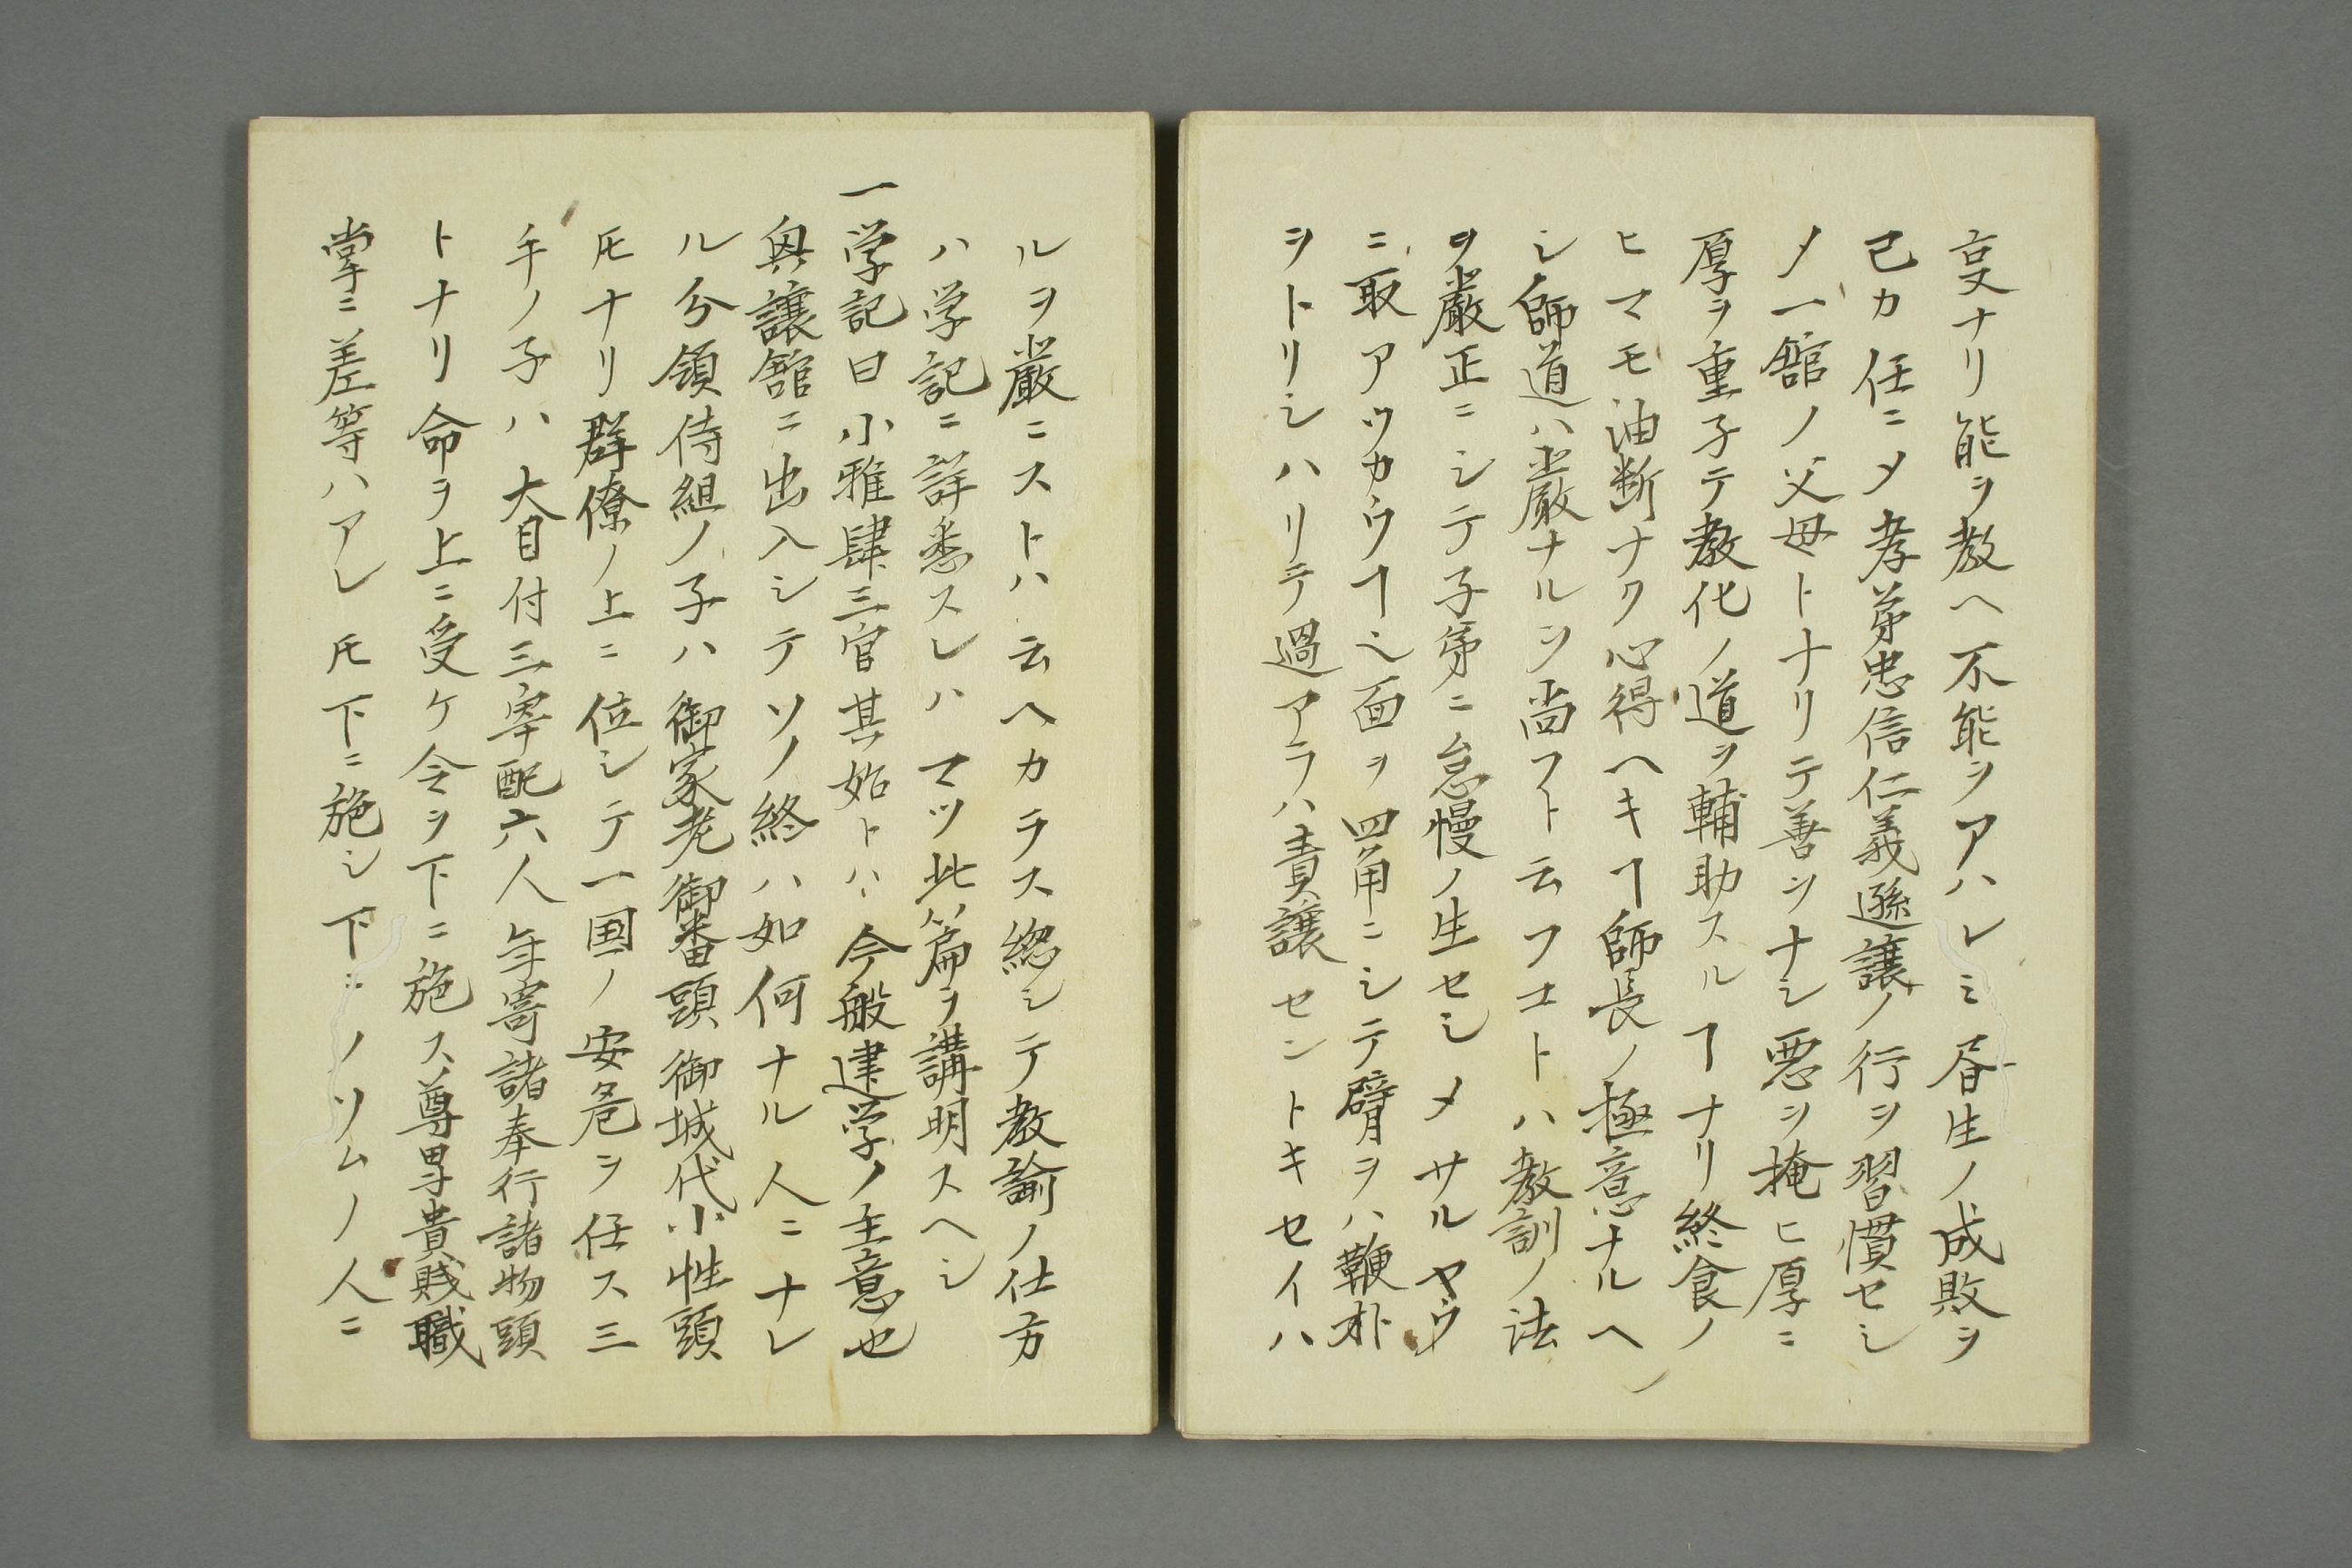 亨ナリ能ヲ教ヘ不能ヲアハレミ居生ノ成敗ヲ
己カ任ニメ孝弟忠信仁義遜譲ノ行ヲ習慣セシ
メ一舘ノ父母トナリテ善ヲナシ悪ヲ掩ヒ厚ニ
厚ヲ重子テ教化ノ道ヲ輔助スルヿナリ終食ノ
ヒマモ油断ナク心得ヘキヿ師長ノ極意ナルヘ
シ師道ハ厳ナルヲ尚フト云フコトハ教訓ノ法
ヲ厳正ニシテ子弟ニ怠慢ノ生セシメサルヤウ
ニ取アツカウヿ也面ヲ四角ニシテ臂ヲハ鞭朴
ヲトリシハリテ過アラハ責譲セントキセイハ
ルヲ厳ニストハ云ヘカラス総シテ教諭ノ仕方
ハ学記ニ詳悉スレハマツ此篇ヲ講明スヘシ
一学記曰小雅肄三官其始トハ今般建学ノ主意也
興譲舘ニ出入シテソノ終ハ如何ナル人ニナレ
ル分領侍組ノ子ハ御家老御番頭御城代小性頭
𪜈ナリ群僚ノ上ニ位シテ一国ノ安危ヲ任ス三
手ノ子ハ大目付三宰配六人年寄諸奉行諸物頭
トナリ命ヲ上ニ受ケ令ヲ下ニ施ス尊卑貴賤職
掌ニ差等ハアレ𪜈下ニ施シ下ニノソムノ人ニ